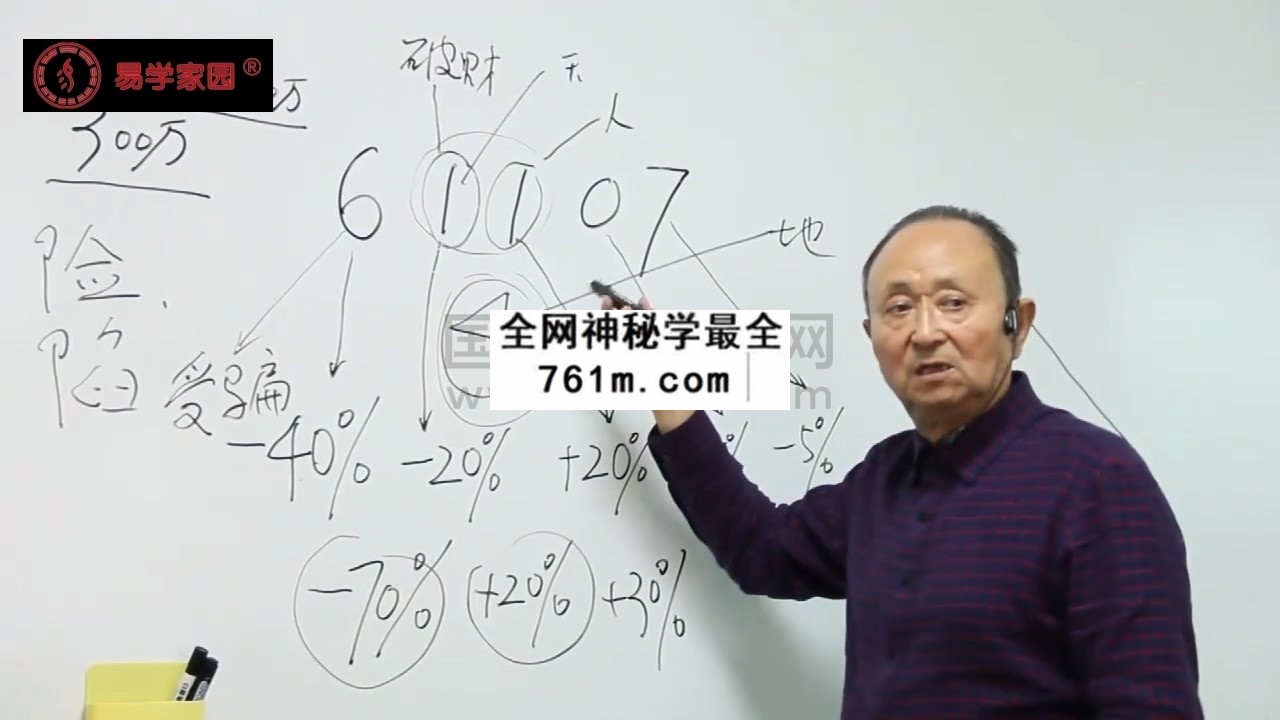 易学家园®
破财
天
万
300万
人
6 1 1 0 7
地
险.
陷
受骗
全网神秘学最全
国 网
761m.com
w m
-40% -20% +20% % -5%
-70% +20% +30%